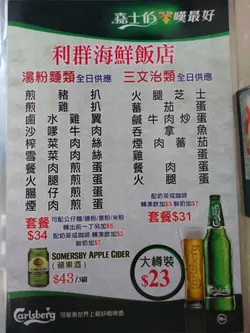 嘉士伯 嘆最好
利群海鮮飯店
湯粉麵類 全日供應
煎豬扒
煎雞扒
鹵水雞翼
沙嗲牛肉
榨菜肉絲
雪菜肉絲
餐肉煎蛋
火腿煎蛋
腸仔煎蛋
煙肉煎蛋
套餐 $34
可配公仔麵/通粉/意粉/米粉
轉出前一丁另加$5
配奶茶或咖啡 轉凍飲加$3
鮮奶加$7
三文治類 全日供應
火腿芝士
蕃茄蛋
鹹牛肉炒蛋
吞拿魚
煙肉蕃茄
雞蛋
餐肉蛋
火腿蛋
配奶茶或咖啡
轉凍飲加$3 鮮奶加$7
套餐 $31
SOMERSBY APPLE CIDER
(蘋果酒)
$43/3罐
大樽裝
$23
Carlsberg
可能是世界上最好的啤酒
18+